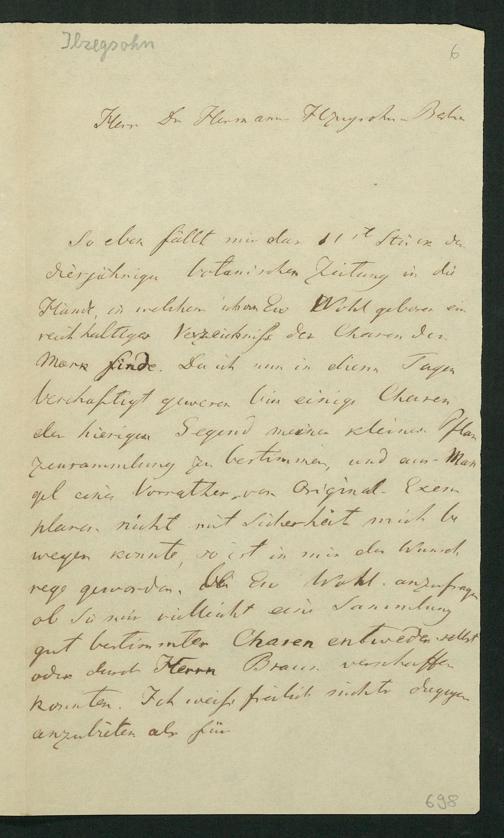 Itzegsohn
6
Herr Dr Hermann Itzigsohn Berlin
So eben fällt mir das 11t Stück der
diesjährigen botanischen Zeitung in die
Hände, in welchem ich von Ew Wohlgeboren ein
reichhaltiges Verzeichniß der Charen der
Mark finde. Da ich nun in diesen Tagen
beschäftigt gewesen bin einige Charen
der hiesigen Gegend meiner kleinen Pflan
zensammlung zu bestimmen, und aus Man
gel eines Vorrathes von Original-Exem
plaren nicht mit Sicherheit mich be
wegen konnte, so ist in mir der Wunsch
rege geworden, bei Ew Wohl. anzufragen
ob Sie mir vielleicht eine Sammlung
gut bestimmter Charen entweder selbst
oder durch Herrn Braun verschaffen
konnten. Ich weiß freilich nichts dagegen
anzubieten als für
698